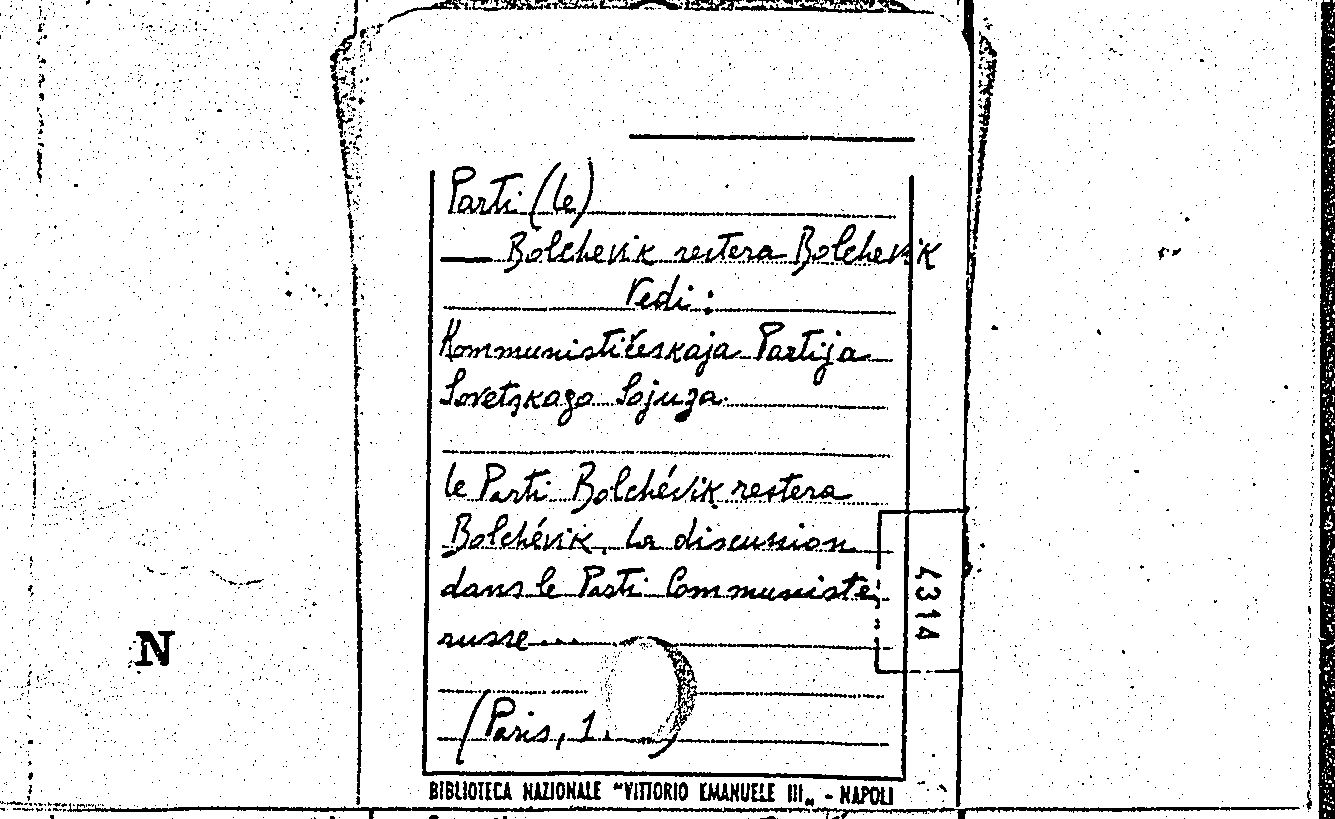 Parti (le)
— Bolchevik restera Bolchevik
Vedi:
Kommunističeskaja Partija
Sovetskago Sojuza
le Parti Bolchévik restera
Bolchévik. La discussion
dans le Parti Communiste
russe...
(Paris, 1. )
4314
N
BIBLIOTECA NAZIONALE "VITTORIO EMANUELE III„ - NAPOLI